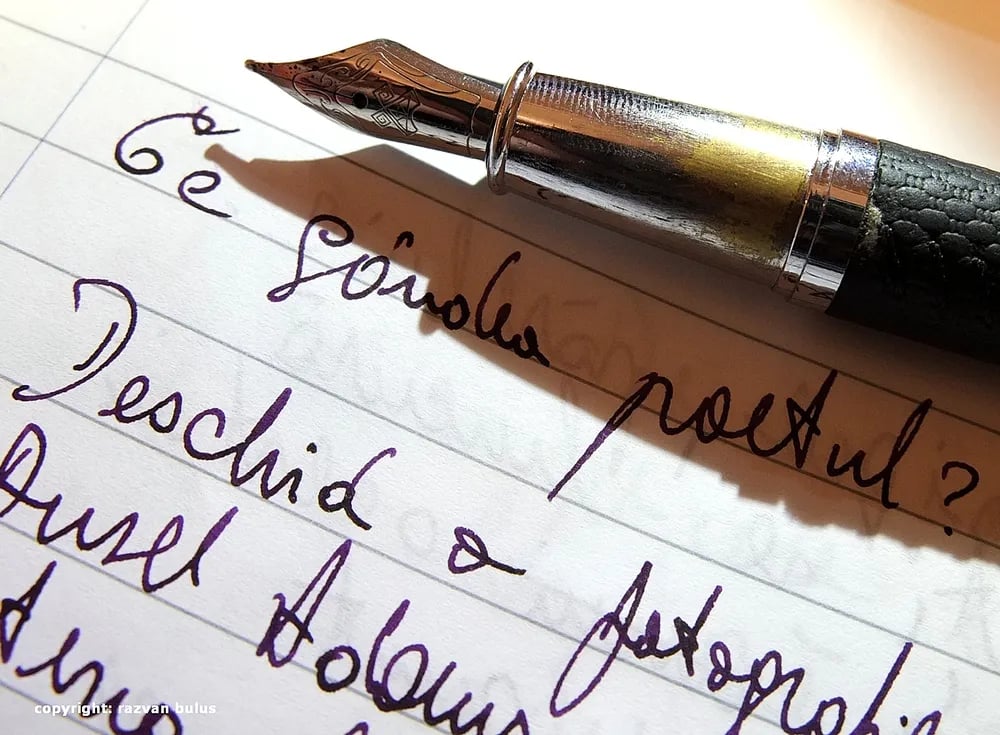 Ce
Gândea poetul?
Deschid o fotografie
Ansel Adams
copyright: razvan bulus